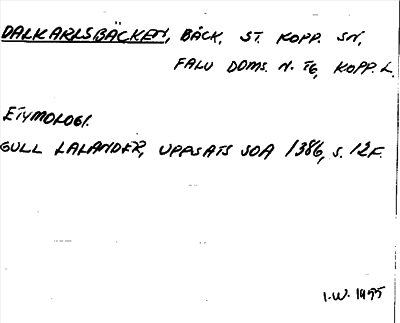 DALKARLSBÄCKEN, BÄCK, ST. KOPP. SN,
FALU DOMS. N. TG, KOPP. L.
ETYMOLOGI.
GULL LALANDER, UPPSATS SOA 1386, S. 12F.
I.W. 1955